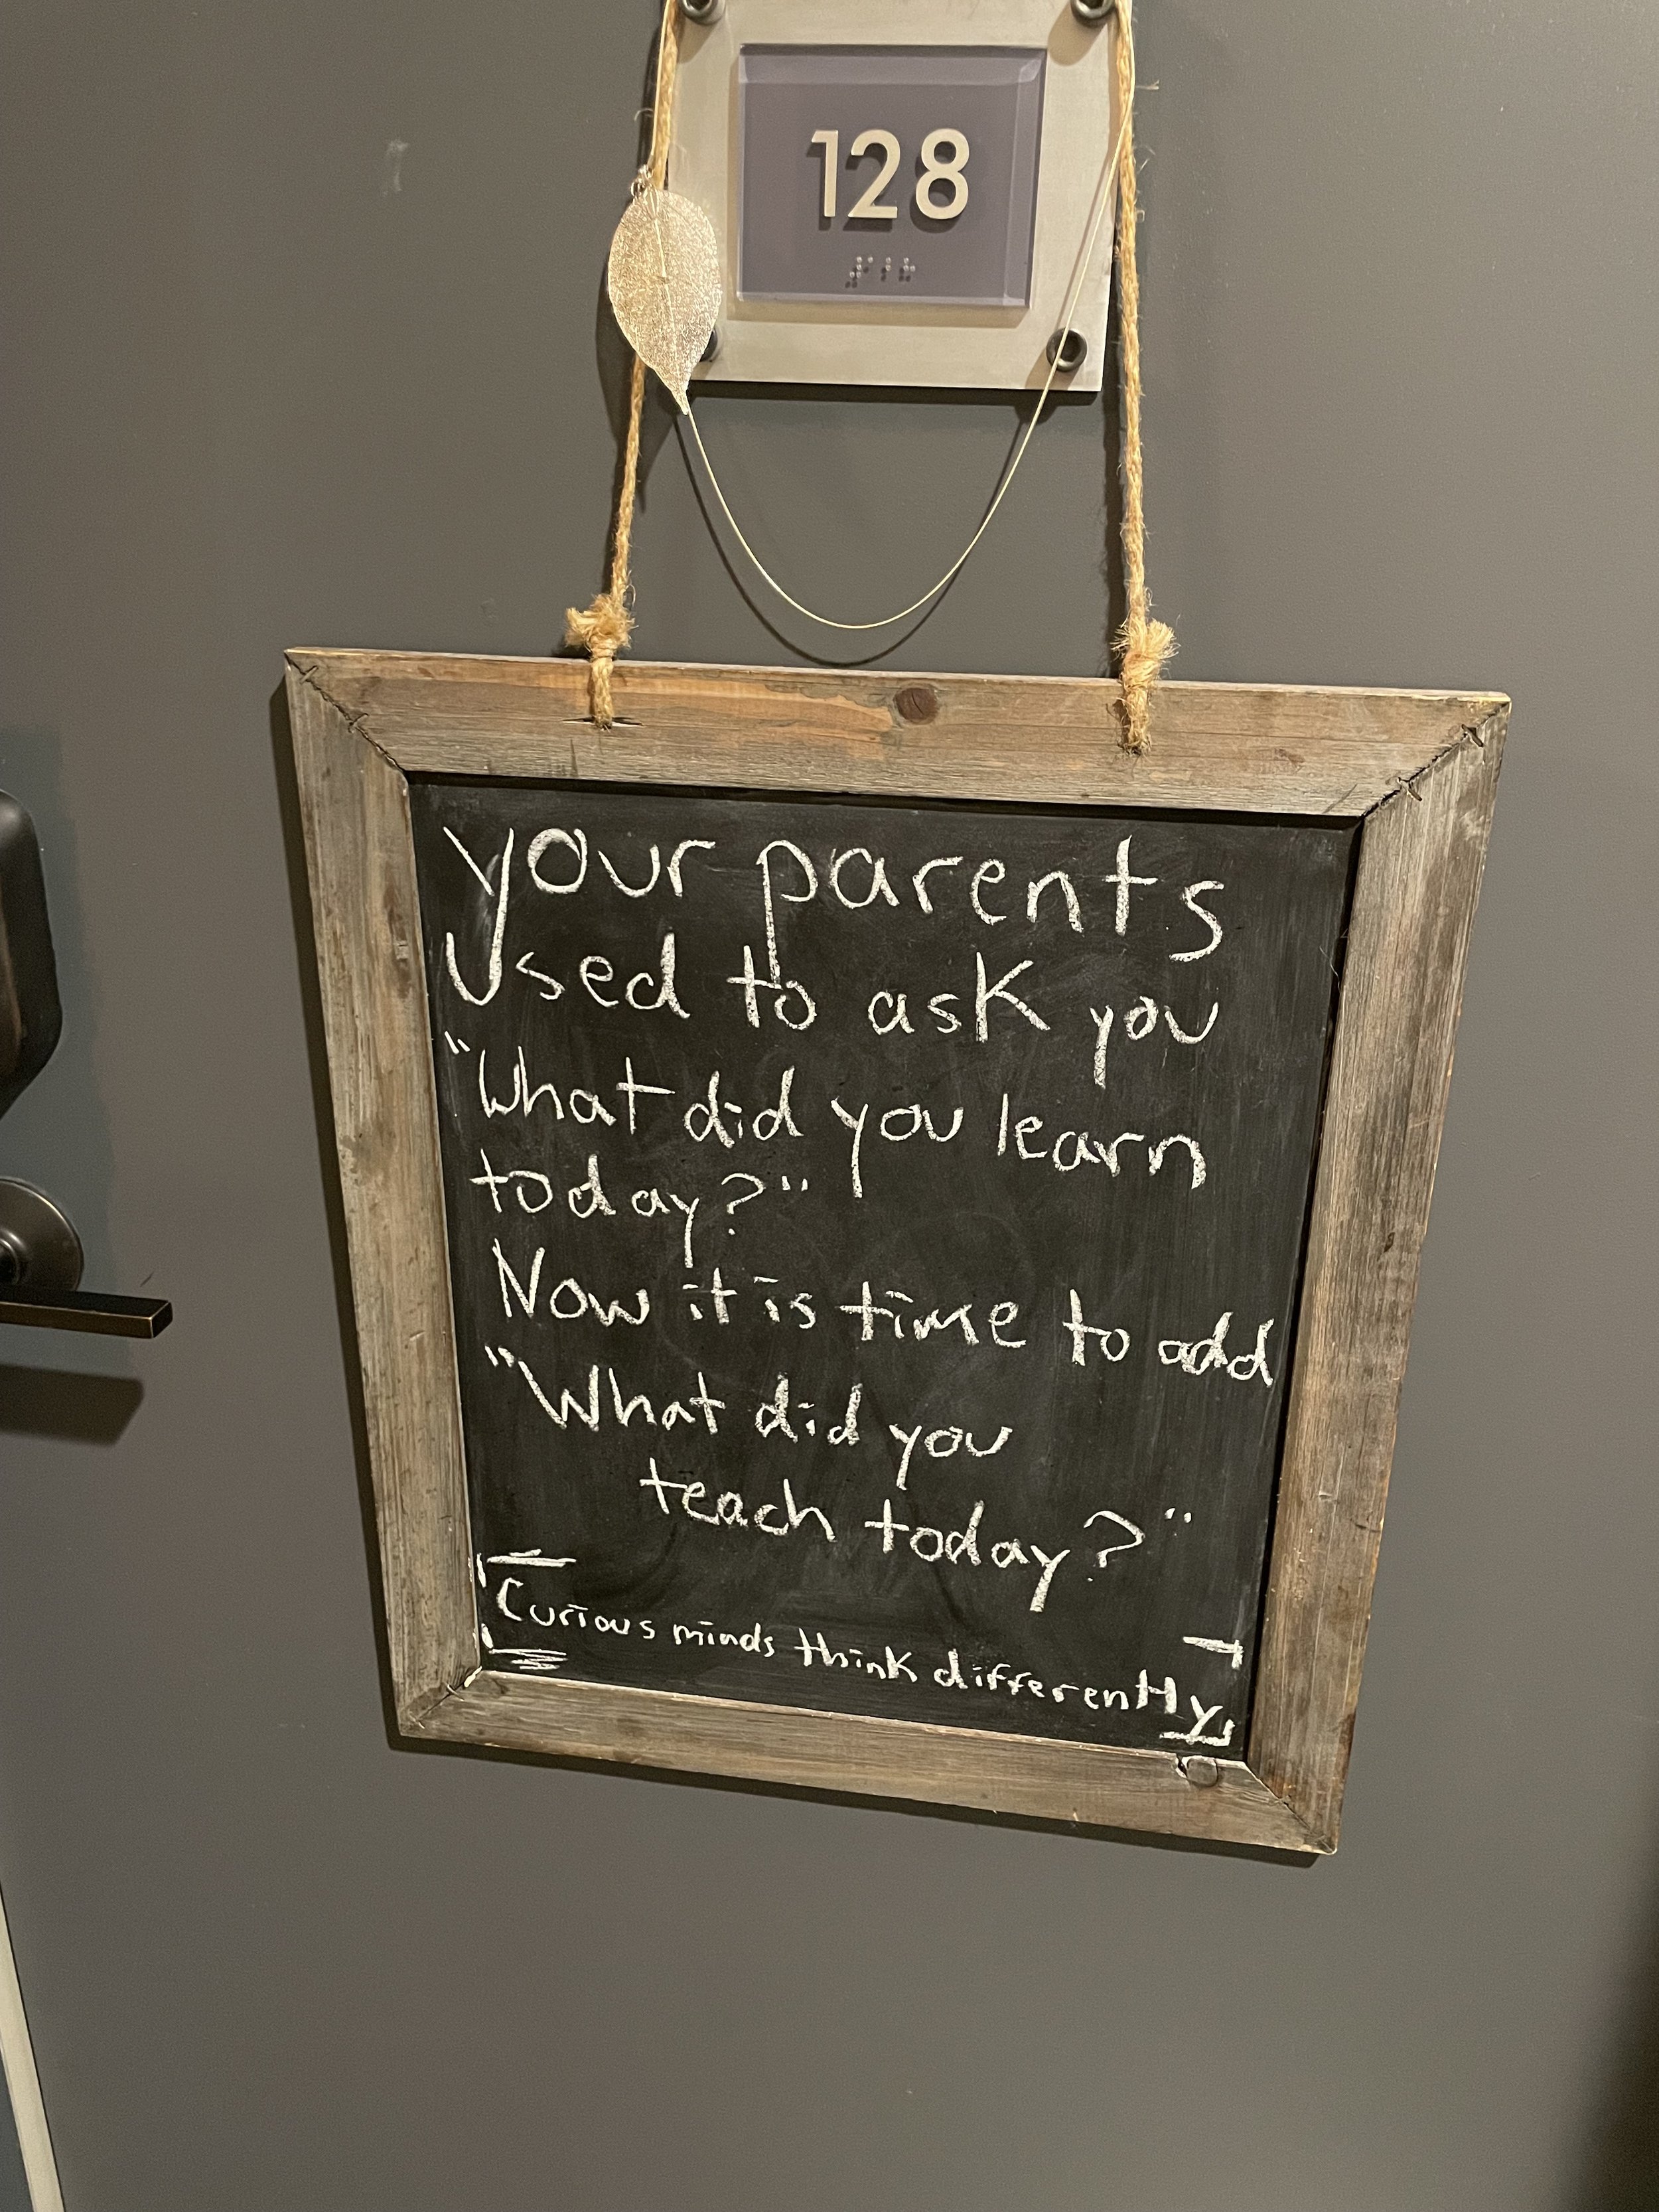 128
your parents
used to ask you
"What did you learn
today?"
Now it is time to add
"What did you
teach today?"
Curious minds think differently